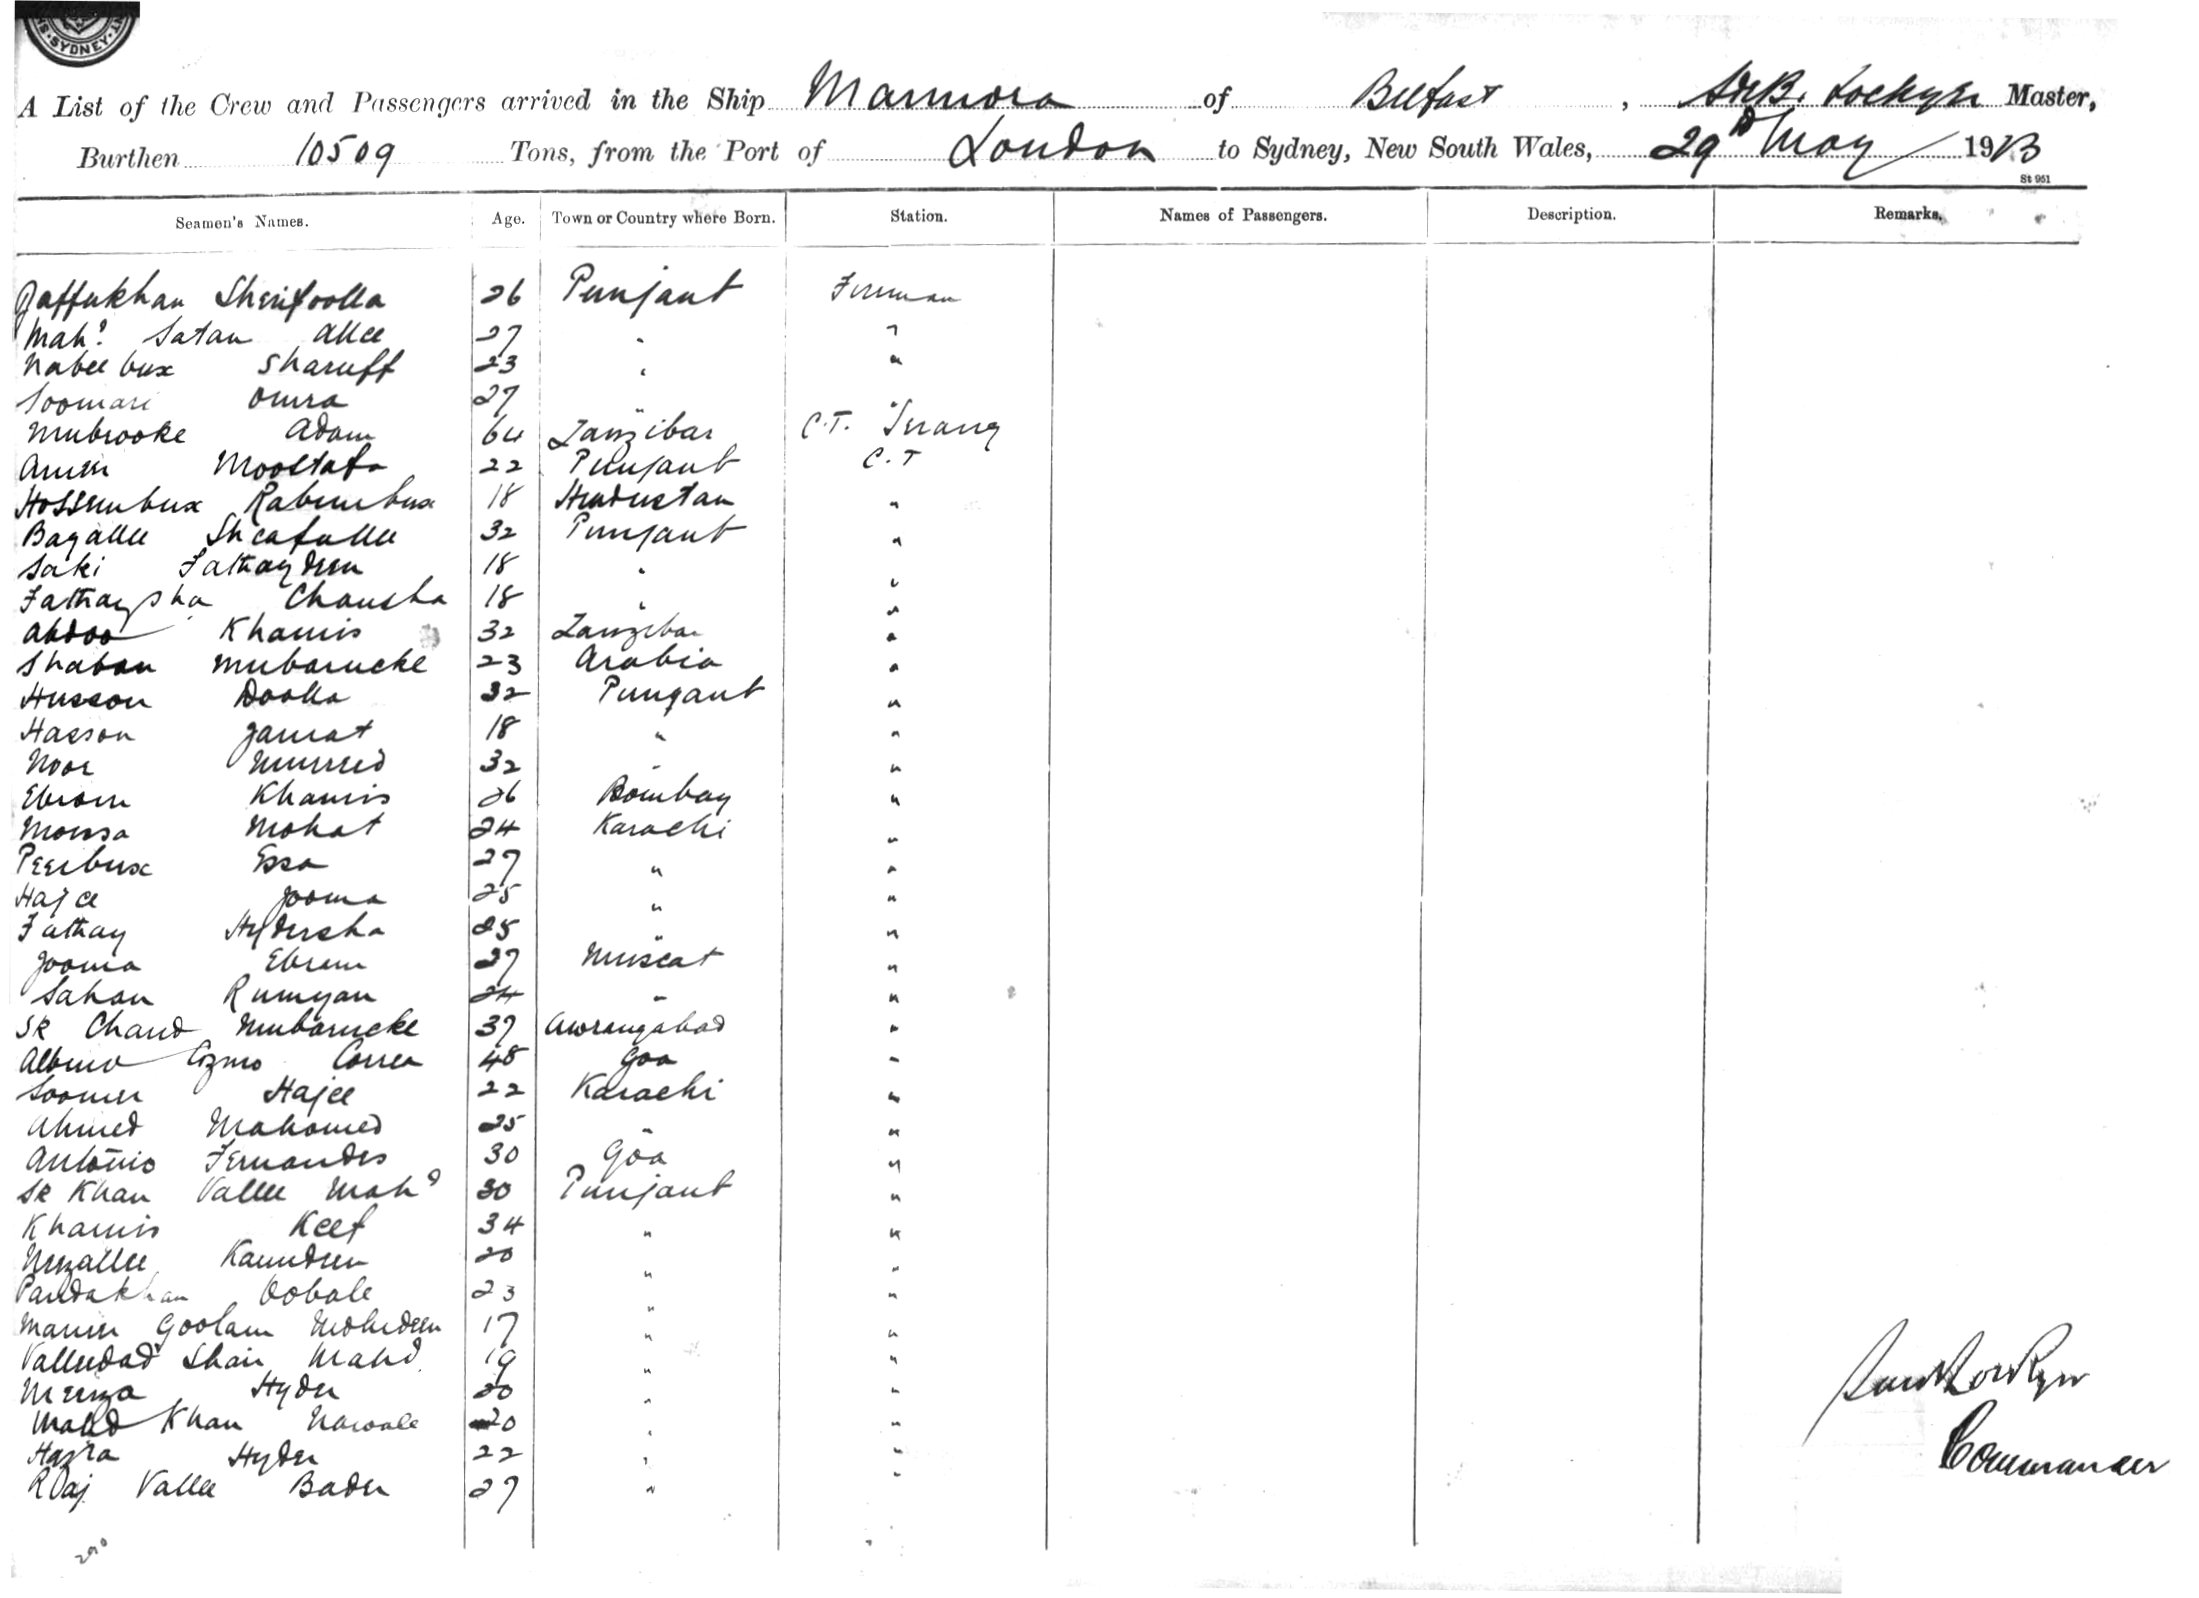 SYDNEY
A List of the Crew and Passengers arrived in the Ship Marmora of Belfast, Lockyer Master,
Burthen 10509 Tons, from the Port of London to Sydney, New South Wales, 29th May 1913
St 951
Seamen's Names. Age. Town or Country where Born. Station. Names of Passengers. Description. Remarks.
Jaffukhan Sherifoolla 26 Punjaub Fireman
Mahd. Satan Allee 27 " "
Nabeebux Sharuff 23 " "
Soomar Omra 27 " "
Mubrooke Adam 64 Zanzibar C.T. Serang
Ameer Moostafa 22 Punjaub C.T
Hossenbux Rabimbux 18 Hindustan "
Bagallee Sheafallee 32 Punjaub "
Saki Fathaydeen 18 " "
Fathaysha Chousha 18 " "
Abdoo Khamis 32 Zanzibar "
Shaban Mubarucke 23 Arabia "
Husson Doolla 32 Punjaub "
Hasson Jamat 18 " "
Noor 32 " "
Ebram Khamis 26 Bombay "
Moussa Mohat 24 Karachi "
Peerbux Essa 27 " "
Hajee Jooma 25 " "
Fathay Hydersha 25 " "
Jooma Ebram 27 Muscat "
Sahan Rumyan 24 " "
SK Chand Mubarucke 37 Awrangabad "
Albino Cozmo Correa 48 Goa "
Soomer Hajee 22 Karachi "
Ahmed Mahomed 25 " "
Antonio Fernandes 30 Goa "
SK Khan Vallee Mahd 30 Punjaub "
Khamis Keef 34 " "
Kamdeen 20 " "
Pandakhan Oobale 23 " "
Goolam Mohideen 17 " "
Valleedad Shair Mahd. 19 " "
Meerza Hyder 20 " "
Mahd Khan Nawale 20 " "
Hazra Hyder 22 " "
Vallee Bader 27 " "
Lockyer
Commander